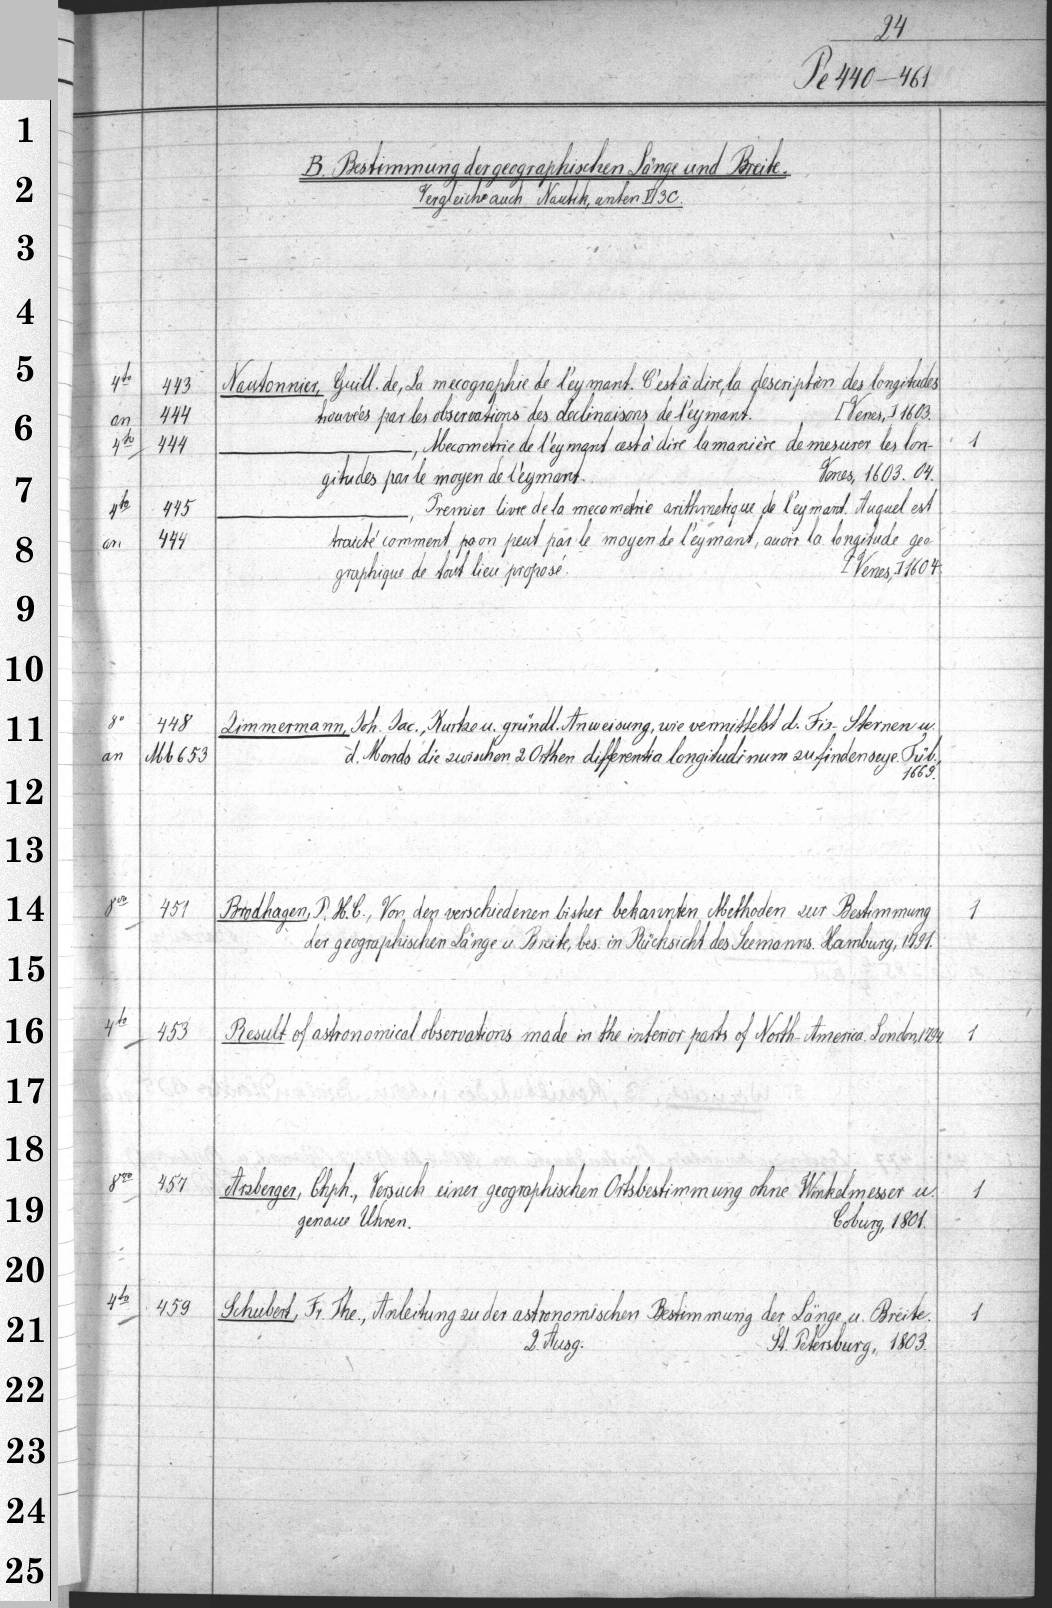 24
Pe 440-461
B. Bestimmung der geographischen Länge und Breite.
Vergleiche auch Nautik, unten VI 3C.
4to 443 Nautonnier, Guill. de, La mecographie de l'eymant. C'est à dire, la description des longitudes
an 444 trouvées par les observations des declinaisons de l'eymant. [Venes,] 1603.
4to 444 ———, Mecometrie de l'eymant cest à dire la manière de mesurer les lon- 1
gitudes par le moyen de l'eymant. Venes, 1603. 04.
4to 445 ———, Premier livre de la mecometrie arithmetique de l'eymant. Auquel est
an 444 traicté comment on peut par le moyen de l'eymant, auoir la longitude geo
graphique de tout lieu proposé. [Venes,] 1604.
8o 448 Zimmermann, Joh. Jac., Kurtze u. gründl. Anweisung, wie vermittelst d. Fix-Sternen u.
an Mb 653 d. Monds die zwischen 2 Orthen differentia longitudinum zu finden seye. Tüb.,
1669.
8vo 451 Brodhagen, P. H. C., Von den verschiedenen bisher bekannten Methoden zur Bestimmung 1
der geographischen Länge u. Breite, bes. in Rücksicht des Seemanns. Hamburg, 1791.
4to 453 Result of astronomical observations made in the interior parts of North-America. London, 1794 1
8vo 457 Arzberger, Chph., Versuch einer geographischen Ortsbestimmung ohne Winkelmesser u. 1
genaue Uhren. Coburg, 1801.
4to 459 Schubert, Fr. The., Anleitung zu der astronomischen Bestimmung der Länge u. Breite. 1
2. Ausg. St. Petersburg, 1803.
1
2
3
4
5
6
7
8
9
10
11
12
13
14
15
16
17
18
19
20
21
22
23
24
25